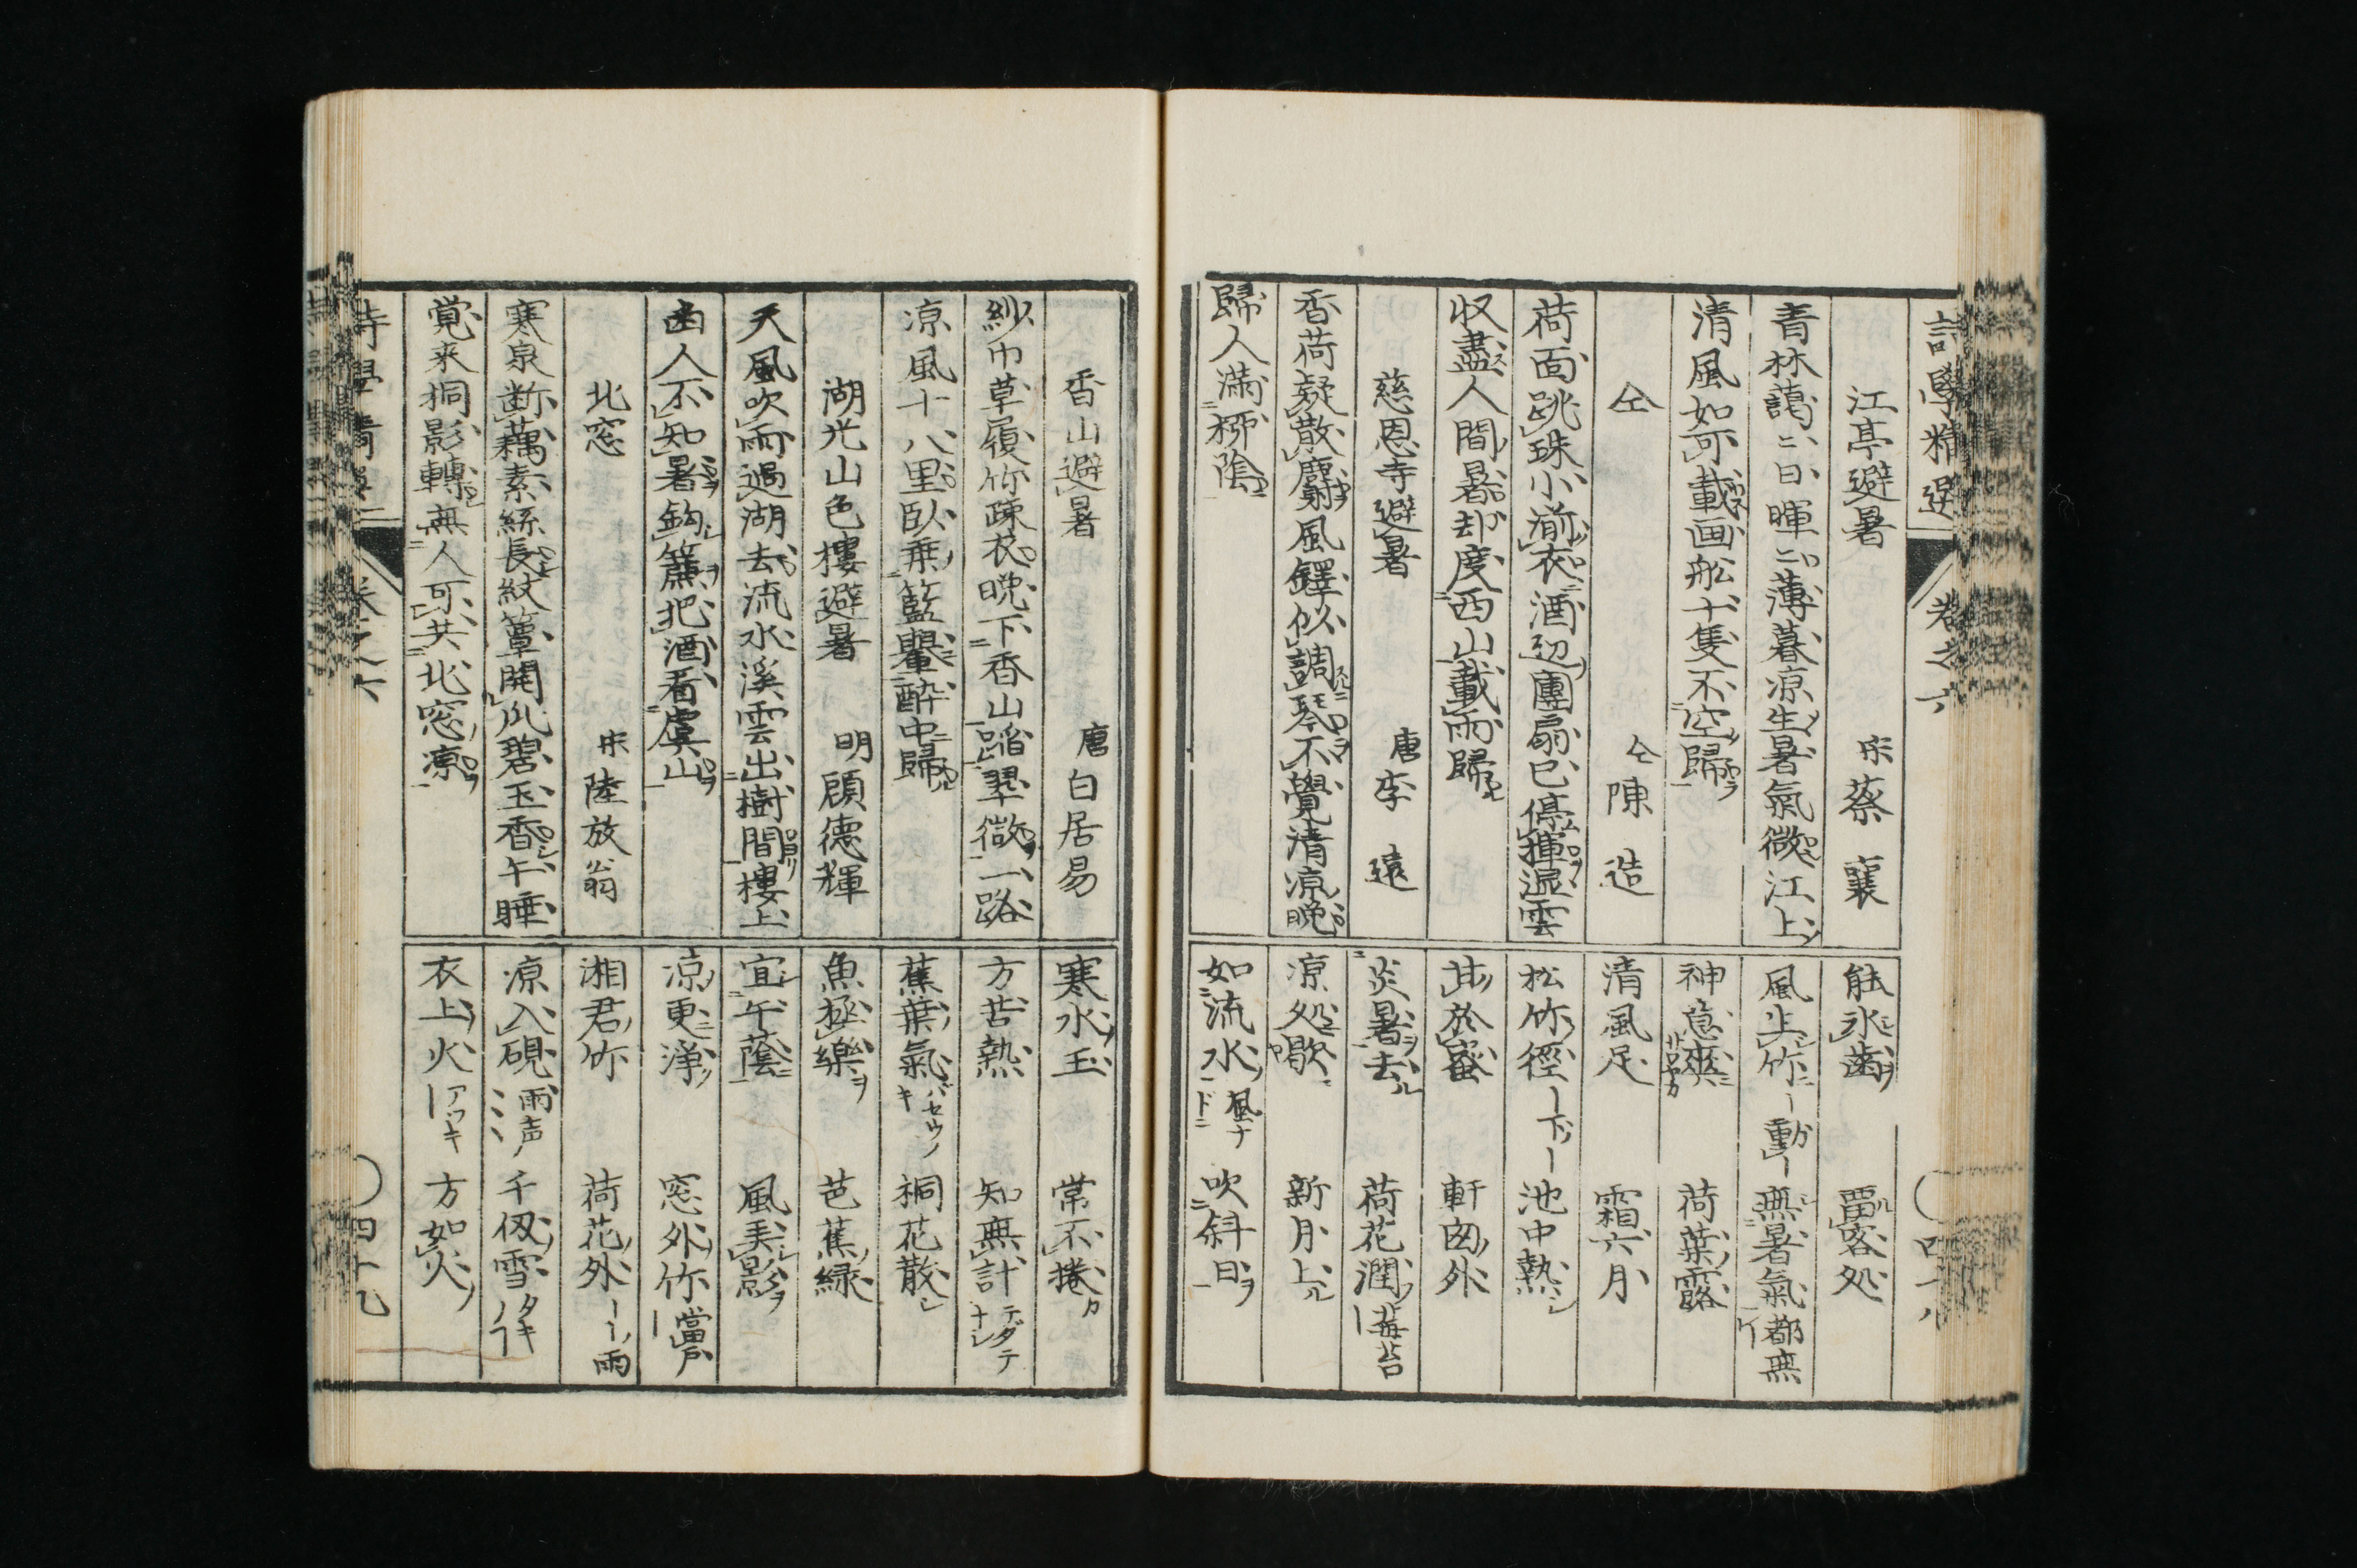 詩學精選 卷之六
江亭避暑 宋 蔡襄
青林藹〻日暉〻薄暮凉生暑氣微江上
清風如可載画舩十隻不空歸
仝 仝 陳造
荷面跳珠小湔衣酒辺團扇已停揮濕雲
収盡人間暑却度西山載雨歸
慈恩寺避暑 唐 李遠
香荷疑散麝風鐸似調琴不覺清凉晩
歸人滿栁陰
氷歯 畱客処
風生竹 動 無暑氣 都無
神意爽 荷葉露
清風足 霜六月
松竹徑 下 池中熱
甘於蜜 軒囱外
炎暑去 荷花潤 苺苔
凉処歇 新月上
如流水 吹斜日
香山避暑 唐 白居易
紗巾草履竹疎衣晩下香山蹈翠微一路
凉風十八里臥乗籃轝酔中歸
湖光山色樓避暑 明 顧德輝
天風吹雨過湖去流水溪雲出樹間樓上
凾人不知暑鈎簾把酒看虞山
北窓 宋 陸放翁
寒泉断藕素絲長紋簟開凡碧玉香午睡
覚来桐影轉無人可共北窓凉
寒水玉 常不捲
方苦熱 知無計 テダテナシ
蕉葉氣 バセウノキ 桐花散
魚極樂 芭蕉緑
宜午蔭 風美影
凉更浄 窓外竹 當戸
湘君竹 荷花外 雨
凉入硯 雨声 千仭雪
衣上火 アツキ 方如火
詩學精選 卷之六 四十九